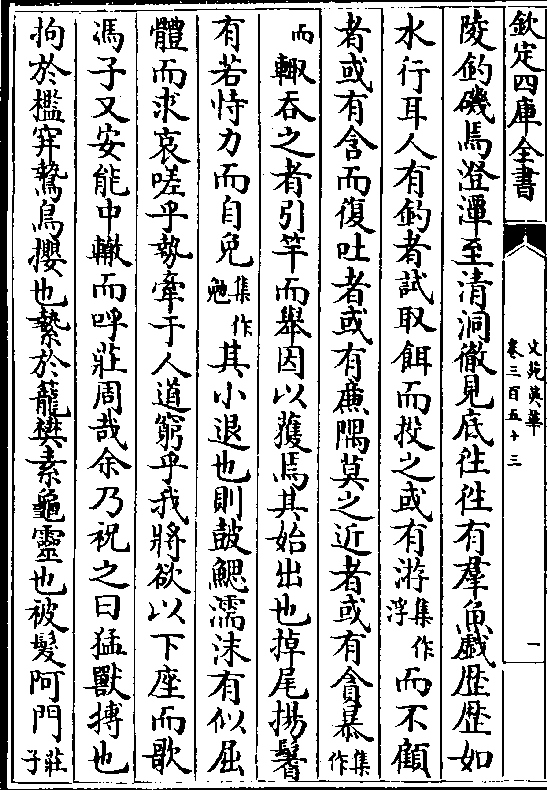 欽定四庫全書
文苑英華
卷三百五十三
一
陵釣磯焉澄潭至清洞徹見底往往有羣魚戲歴歴如
水行耳人有釣者試取餌而投之或有游集作浮而不顧
者或有含而復吐者或有㢘隅莫之近者或有貪暴集作
而輙吞之者引竿而舉因以獲焉其始出也掉尾揚鬐
有若恃力而自免集作勉其小退也則鼓鰓濡沫有似屈
體而求哀嗟乎勢牽于人道窮乎我將欲以下座而歌
馮子又安能中轍而呼莊周哉余乃祝之曰猛獸摶也
拘於檻穽鷙鳥攖也縶於籠樊素龜靈也被髮阿門莊子